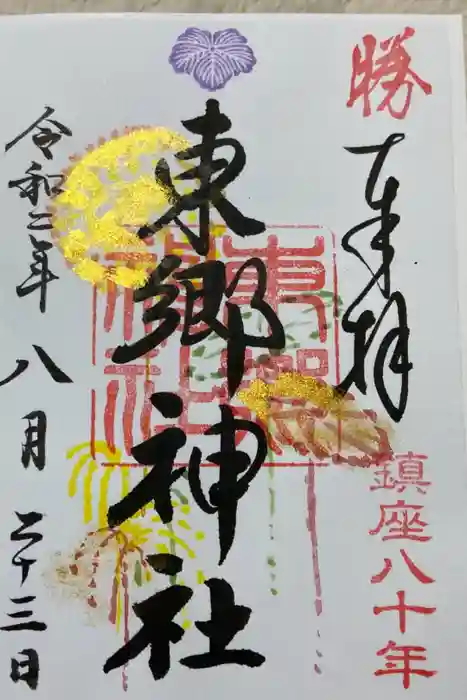 勝
奉拝
鎮座八十年
東郷神社
東郷神社
令和二年八月二十三日